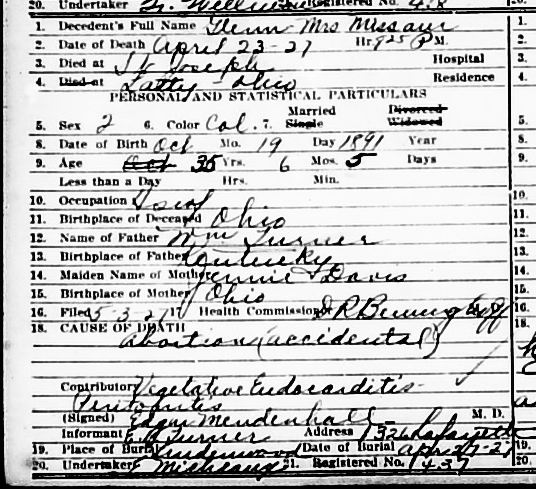 20. Undertaker Registered No. 418
1. Decedent's Full Name Glenn Mrs Missouri
2. Date of Death April 23-27 Hr 9 25 P M.
3. Died at St Joseph Hospital
4. Died at Latty Ohio Residence
PERSONAL AND STATISTICAL PARTICULARS
Married Divorced
5. Sex 2 6. Color Col. 7. Single Widowed
8. Date of Birth Oct Mo. 19 Day 1891 Year
9. Age Oct 35 Yrs. 6 Mos. 5 Days
Less than a Day Hrs. Min.
10. Occupation
11. Birthplace of Deceased Ohio
12. Name of Father Wm Turner
13. Birthplace of Father Kentucky
14. Maiden Name of Mother Jennie Davis
15. Birthplace of Mother Ohio
16. Filed 5-3-27 17. Health Commission D R Benning
18. CAUSE OF DEATH
Abortion (accidental)
Contributory Vegetative Endocarditis
Peritonitis
(Signed) Edgar Mendenhall M. D.
Informant E. B. Turner Address 1326 Lafayette
19. Place of Burial Lindenwood Date of Burial Apr 27-27
20. Undertaker Micheaux 21. Registered No. 437